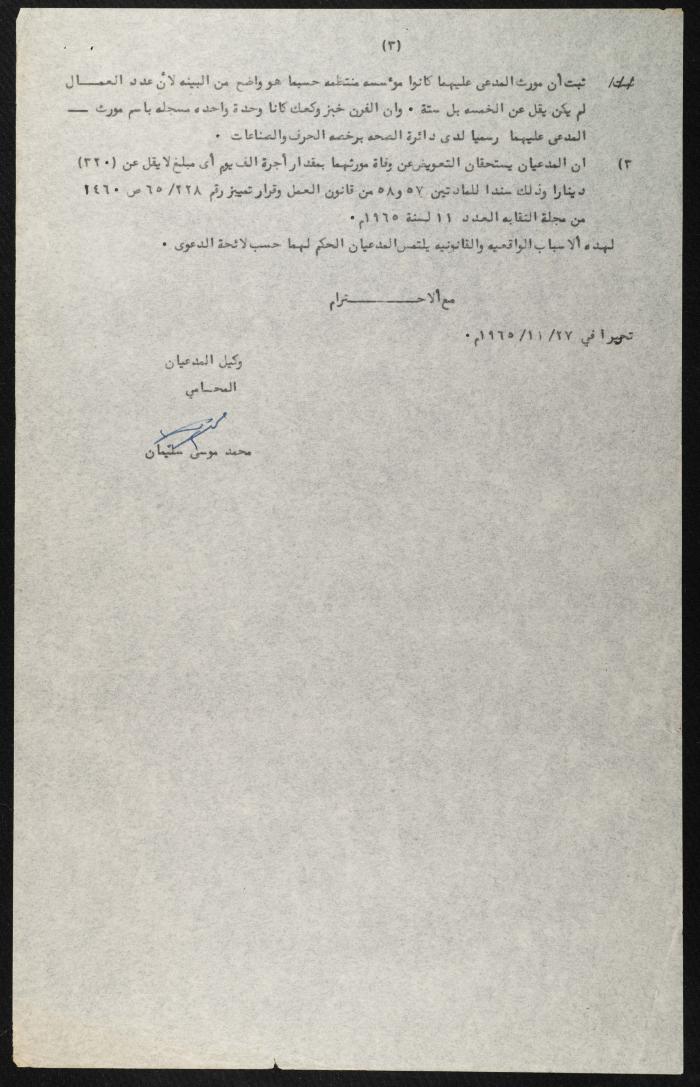 (٣)
ثبت أن مورث المدعى عليهما كانوا موءسسه منتظمه حسبما هو واضح من البينه لأن عدد العمـــال
لم يكن يقل عن الخمسه بل ستة ٠ وان الفرن خبز وكعك كانا وحدة واحده مسجله باسم مورث ــ
المدعى عليهما رسميا لدى دائرة الصحه برخصه الحرف والصناعات ٠
٣) ان المدعيان يستحقان التعويض عن وفاة مورثهما بمقدار أجرة الف يوم أى مبلغ لا يقل عن (٣٢٠)
دينارا وذلك سندا للمادتين ٥٧ و٥٨ من قانون العمل وقرار تمييز رقم ٢٢٨/ ٦٥ ص ١٤٦٠
من مجلة النقابه العدد ١١ لسنة ١٩٦٥م٠
لهذه ألاسباب الواقعيه والقانونيه يلتمس المدعيان الحكم لهما حسب لائحة الدعوى ٠
مع ألاحــــــــترام
تحريرا في ٢٧/ ١١/ ١٩٦٥م٠
وكيل المدعيان
المحــامي
محمد موسى سليمان